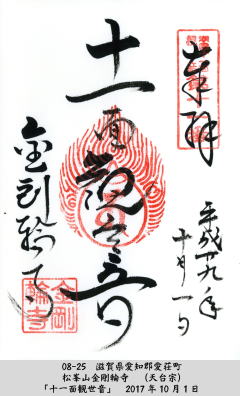 奉拝
平成廿九年
十月一日
十一面観世音
金剛輪寺
金剛
輪寺
08-25 滋賀県愛知郡愛荘町
松峯山金剛輪寺 (天台宗)
「十一面観世音」 2017年10月1日